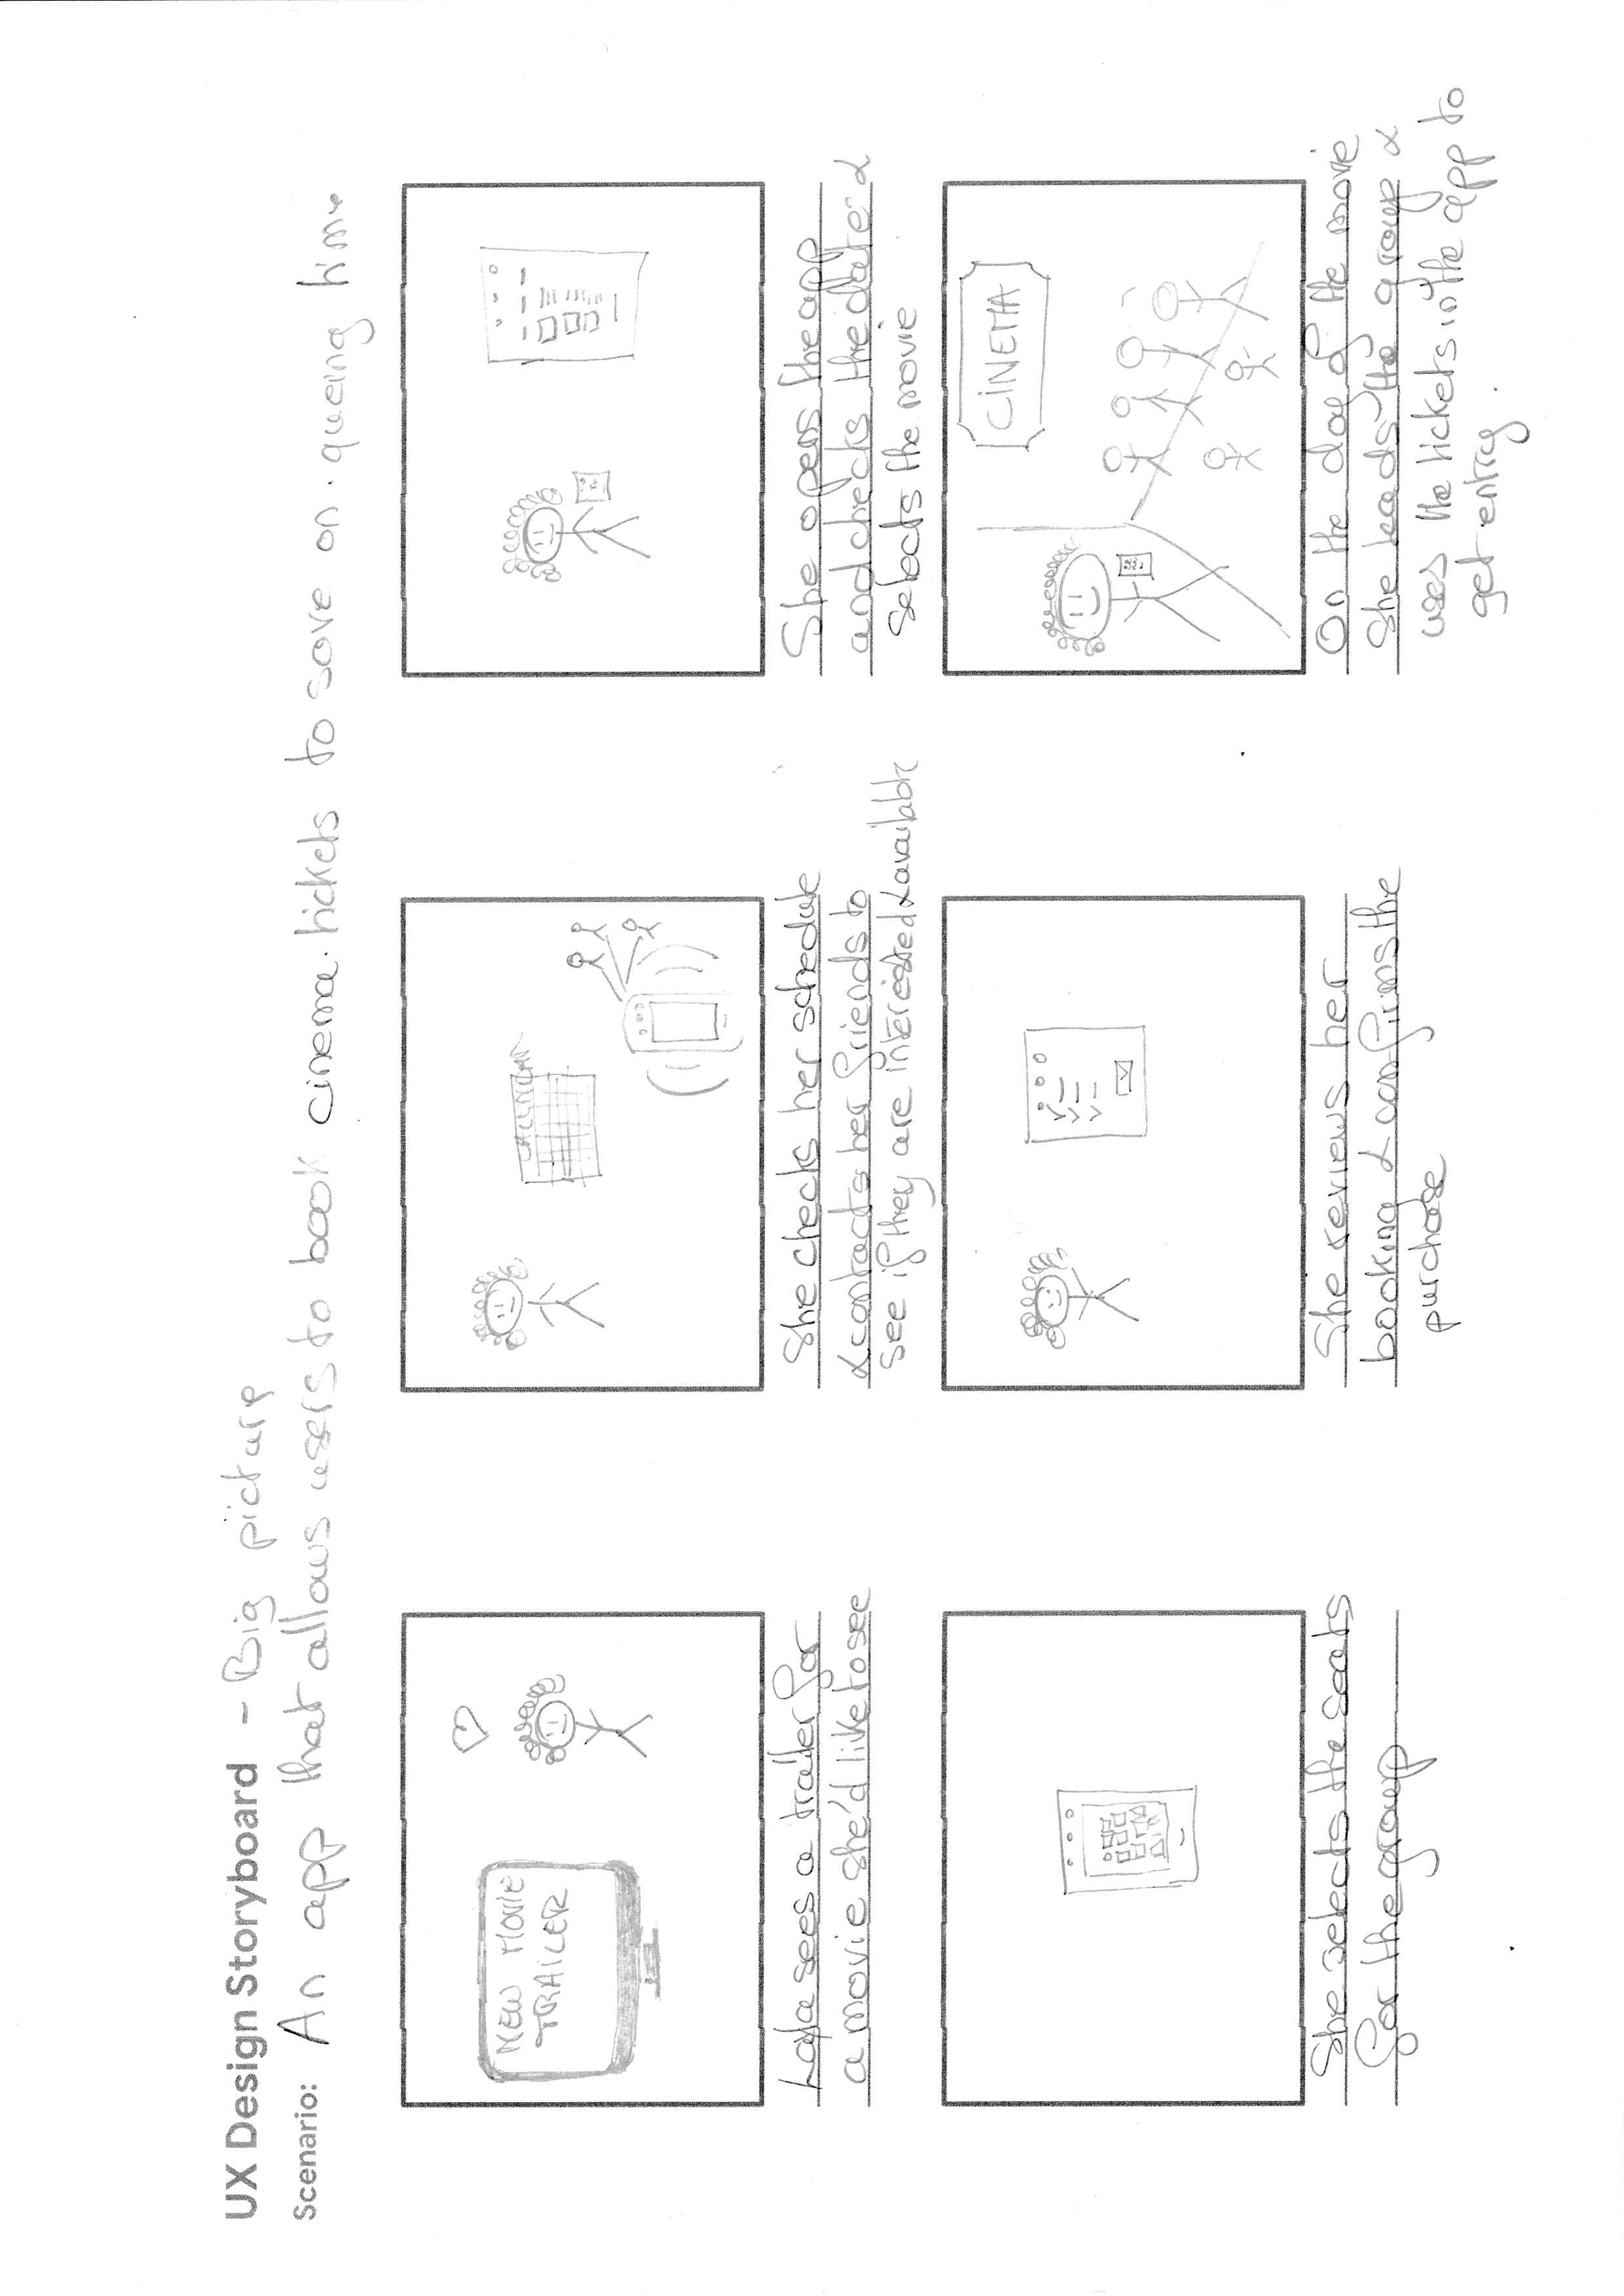 UX Design Storyboard - Big picture
Scenario: An app that allows users to book cinema tickets to save on queing time
NEW MOVIE
TRAILER
Laya sees a trailer for
a movie she'd like to see
CALENDAR
She checks her schedule
& contacts her friends to
see if they are interested & available
She opens the app
and checks the date &
selects the movie
She selects the seats
for the group
She reviews her
booking & confirms the
purchase
CINEMA
On the day of the movie
she leads the group &
uses the tickets in the app to
get entry.